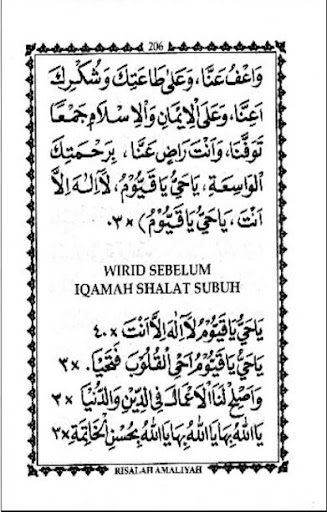 206
وَاعْفُ عَنَّا، وَعَلَى طَاعَتِكَ وَشُكْرِكَ
اَعِنَّا، وَعَلَى الْاِيْمَانِ وَالْاِسْلَامِ جَمْعًا
تَوَفَّنَا، وَاَنْتَ رَاضٍ عَنَّا، بِرَحْمَتِكَ
الْوَاسِعَةِ، يَاحَيُّ يَاقَيُّوْمُ، لَآ اِلٰهَ اِلَّا
اَنْتَ، يَاحَيُّ يَاقَيُّوْمُ) ×٣.
WIRID SEBELUM
IQAMAH SHALAT SUBUH
يَاحَيُّ يَاقَيُّوْمُ لَآ اِلٰهَ اِلَّا اَنْتَ ×٤٠
يَاحَيُّ يَاقَيُّوْمُ اَحْيِ الْقُلُوْبَ فَتَحْيَا. ×٣
وَاَصْلِحْ لَنَا الْاَعْمَالَ فِى الدِّيْنِ وَالدُّنْيَا ×٣
يَا اَللهُ بِهَا يَا اَللهُ بِهَا يَا اَللهُ بِحُسْنِ الْخَاتِمَةِ ×٣
RISALAH AMALIYAH